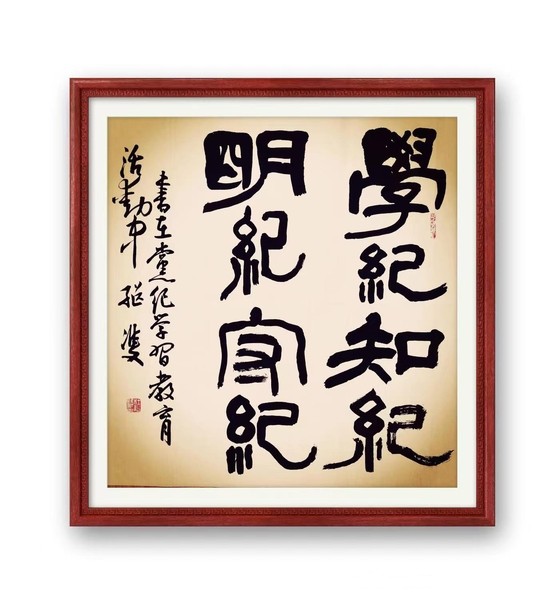 學紀知紀
明紀守紀
書在黨紀学習教育
活動中 砚雙